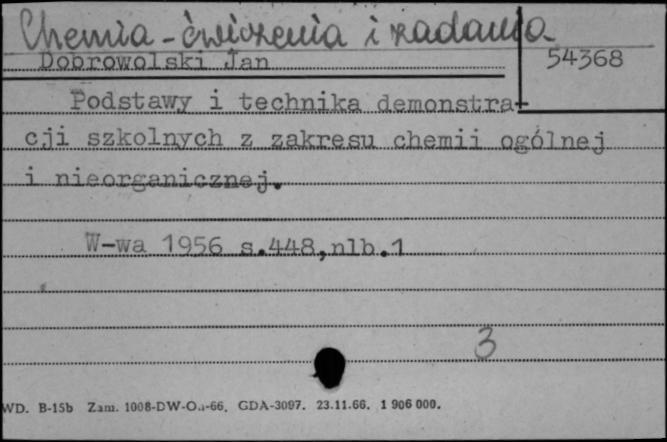 Chemia - ćwiczenia i zadania
Dobrowolski Jan
54368
Podstawy i technika demonstra-
cji szkolnych z zakresu chemii ogólnej
i nieorganicznej.
W-wa 1956 s.448,nlb.1
3
WD. B-15b Zam. 1008-DW-Os-66. GDA-3097. 23.11.66. 1 906 000.